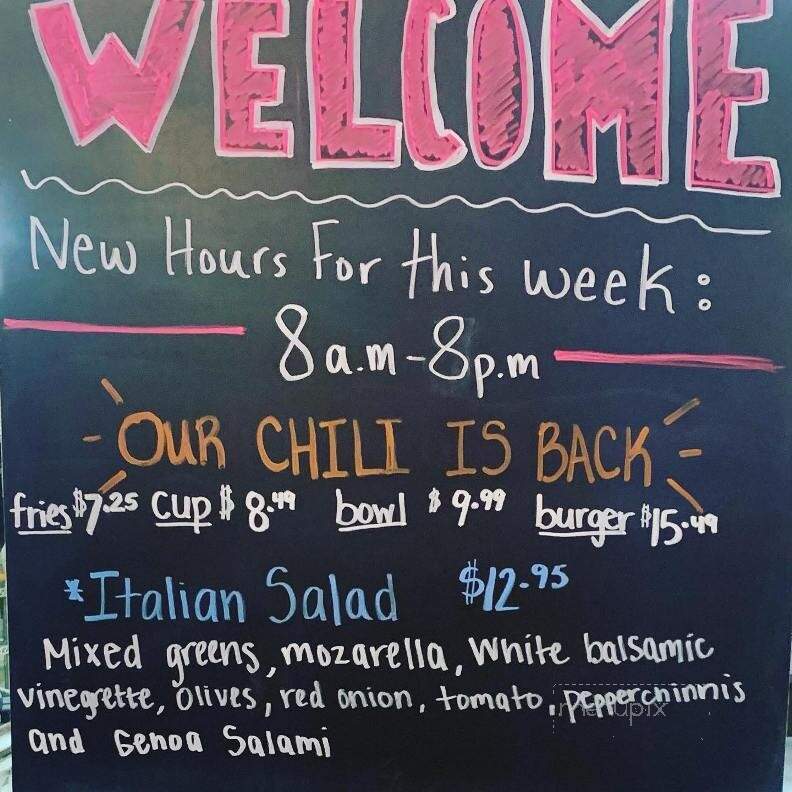 WELCOME
New Hours For this week:
8a.m-8p.m
OUR CHILI IS BACK
fries $7.25 cup $8.49 bowl $9.99 burger $15.49
*Italian Salad $12.95
Mixed greens, mozarella, White balsamic
vinegrette, olives, red onion, tomato, pepperchinnis
and Genoa Salami
menupix